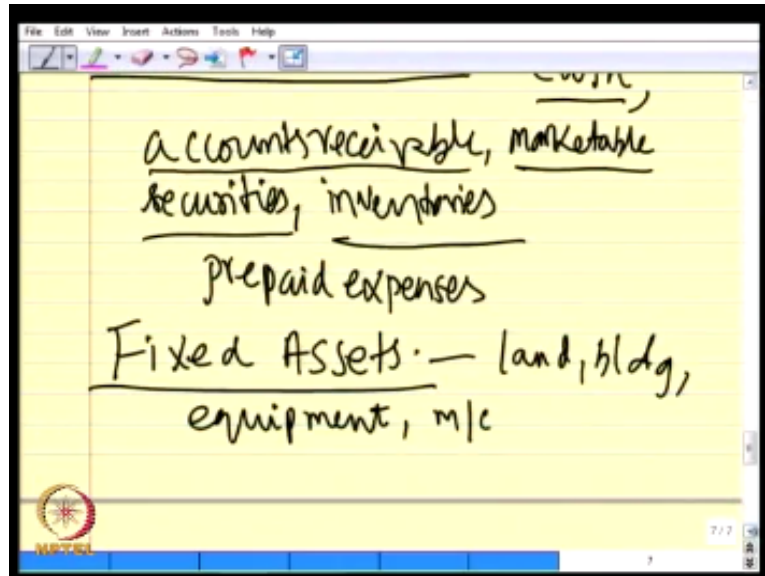 File Edit View Insert Actions Tools Help
cash,
accounts receivable, marketable
securities, inventories
prepaid expenses
Fixed Assets. — land, bldg,
equipment, m/c
NPTEL
7/7
7